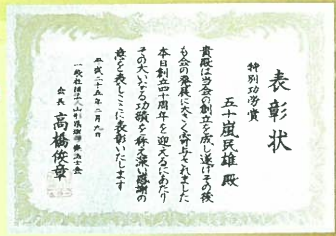 表彰状
特別功労賞
五十嵐民雄 殿
貴殿は当会の創立を成し遂げその後
も会の発展に大きく寄与されました
本日創立四十周年を迎えるにあたり
その大いなる功績を称え深い感謝の
意を表しここに表彰いたします
平成二十五年二月九日
一般社団法人山形県
会長 高橋俊章